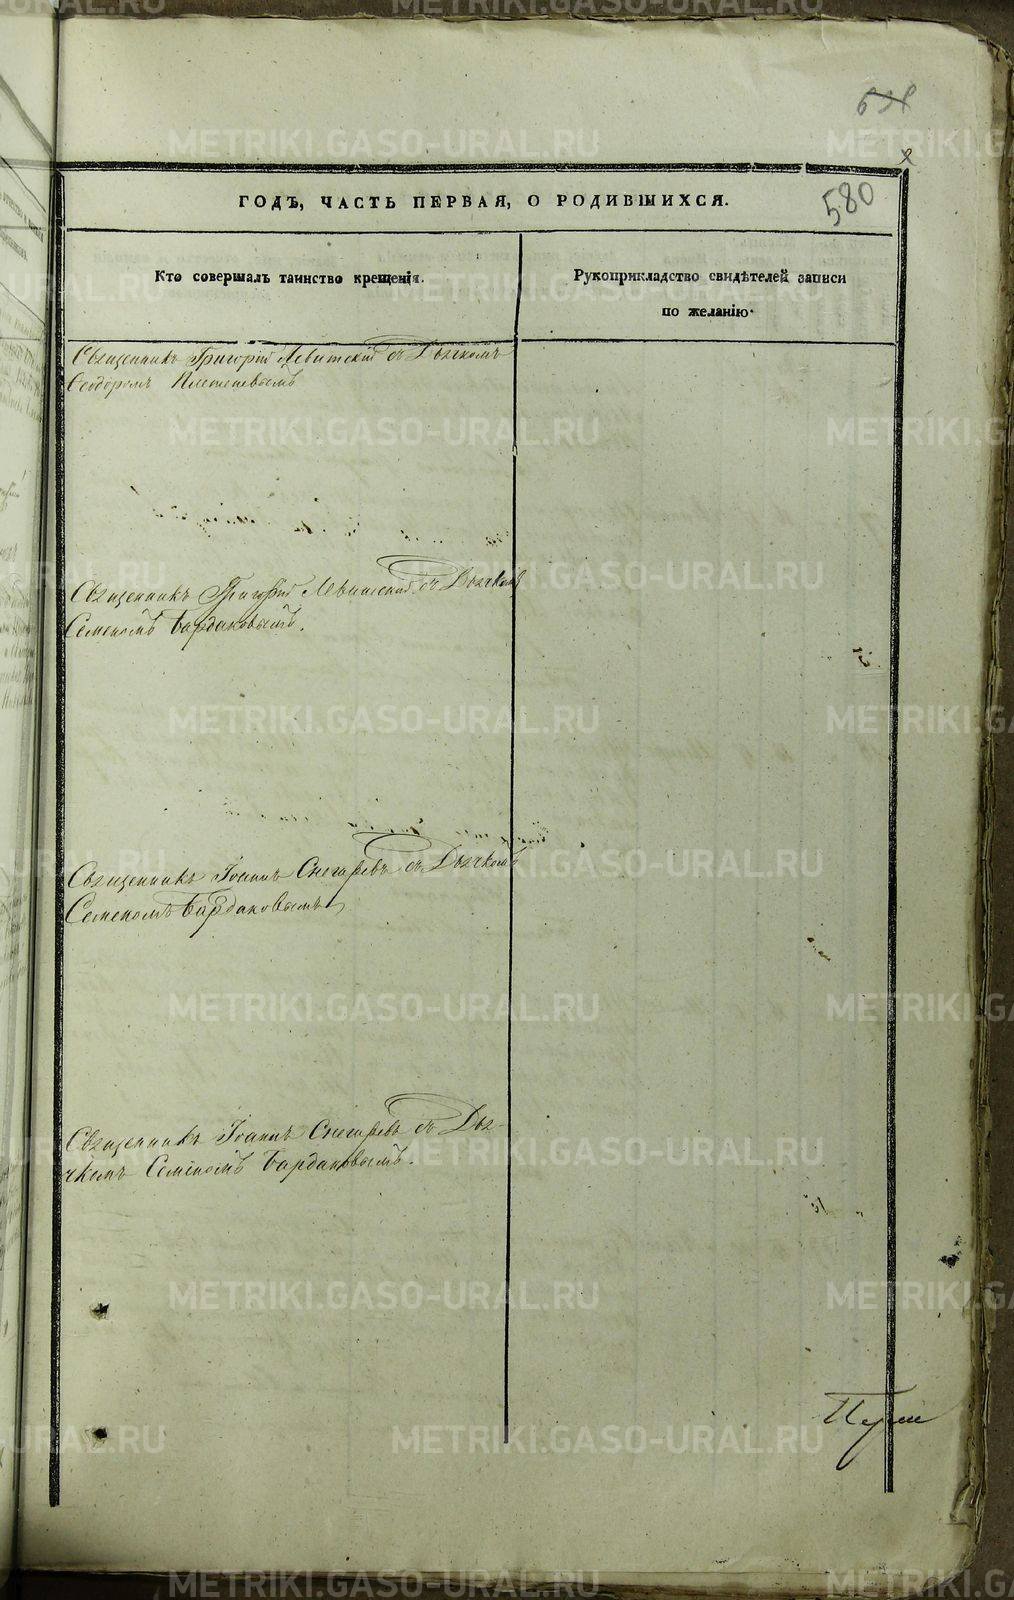 580
ГОДЪ, ЧАСТЬ ПЕРВАЯ, О РОДИВШИХСЯ.
Кто совершалъ таинство крещенія.
Рукоприкладство свидѣтелей записи
по желанію.
Священникъ Григорій Левитскій съ Дьячкомъ
Ѳеодоромъ Плетеневымъ
Священникъ Григорій Левитскій съ Дьячкомъ
Семеномъ Бардаковымъ.
Священникъ Іоаннъ Снегиревъ съ Дьячкомъ
Семеномъ Бардаковымъ
Священникъ Іоаннъ Снегиревъ съ Дья-
чкомъ Семеномъ Бардаковымъ.
METRIKI.GASO-URAL.RU